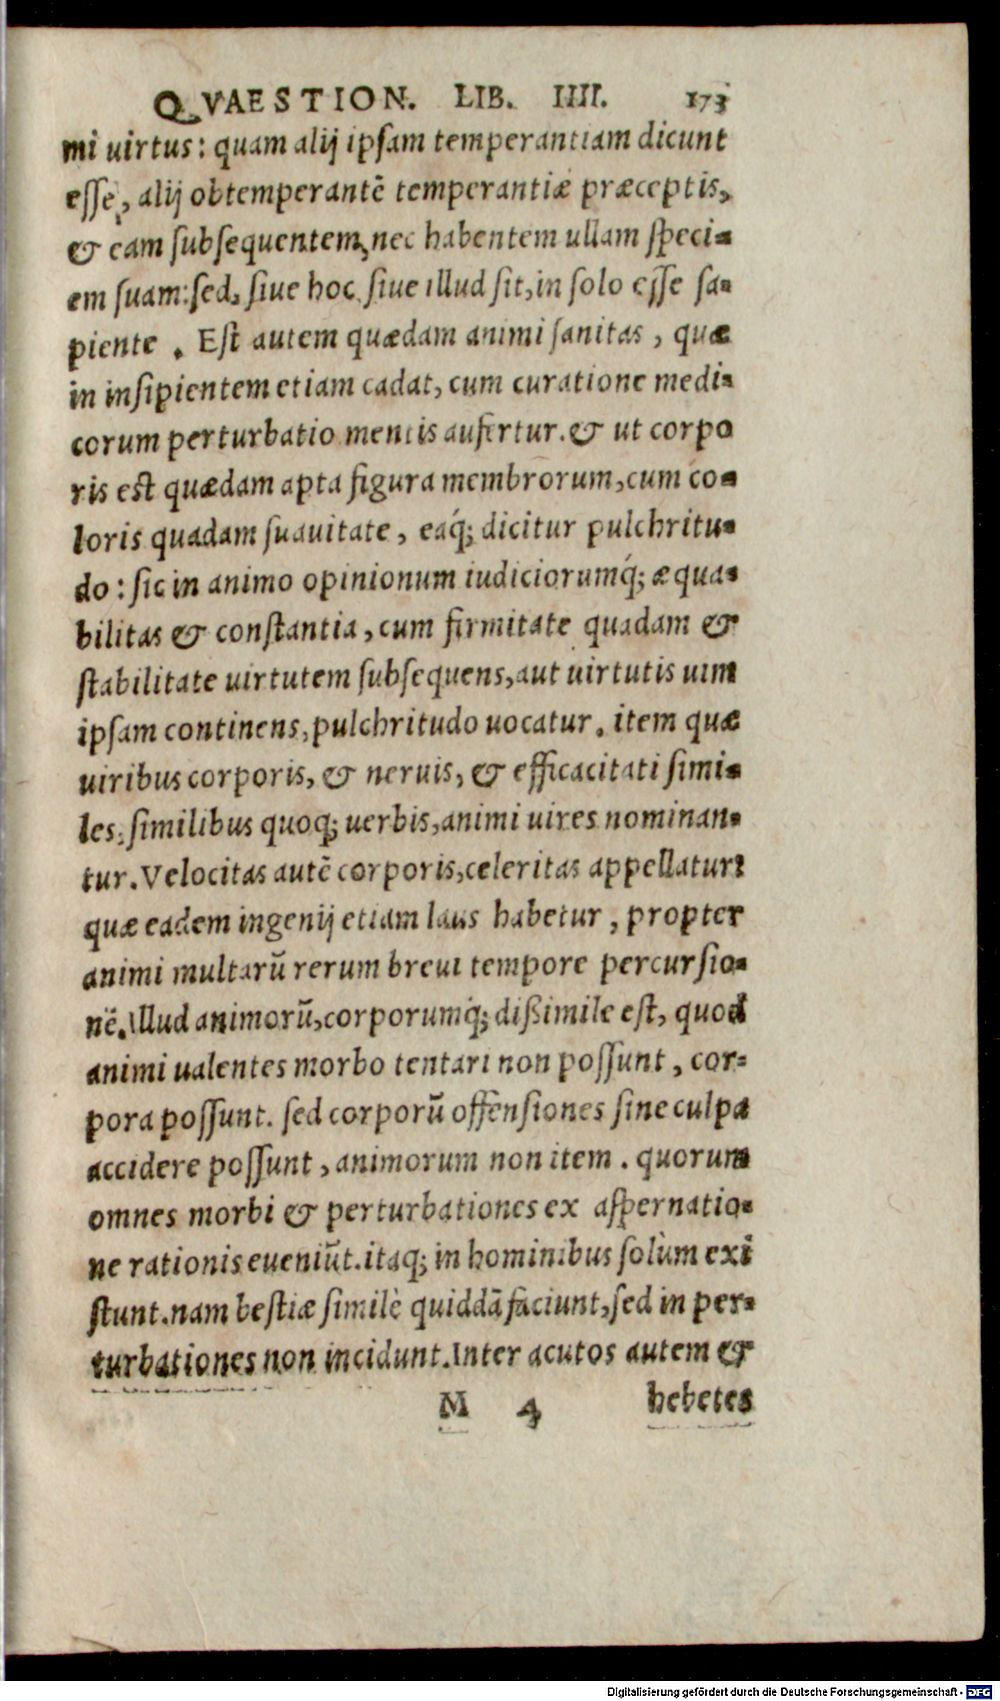 QVAESTION. LIB. IIII. 173
mi uirtus: quam alij ipsam temperantiam dicunt
esse, alij obtemperantē temperantiæ præceptis,
& eam subsequentem, nec habentem ullam speci-
em suam: sed, siue hoc siue illud sit, in solo esse sa-
piente. Est autem quædam animi sanitas, quæ
in insipientem etiam cadat, cum curatione medi-
corum perturbatio mentis aufertur. & ut corpo
ris est quædam apta figura membrorum, cum co-
loris quadam suauitate, eaq́; dicitur pulchritu-
do: sic in animo opinionum iudiciorumq́; æqua-
bilitas & constantia, cum firmitate quadam &
stabilitate uirtutem subsequens, aut uirtutis uim
ipsam continens, pulchritudo uocatur. item quæ
uiribus corporis, & neruis, & efficacitati simi-
les, similibus quoq; uerbis, animi uires nominan-
tur. Velocitas autē corporis, celeritas appellatur:
quæ eadem ingenij etiam laus habetur, propter
animi multarū rerum breui tempore percursio-
nē. Illud animorū, corporumq́; dißimile est, quod
animi ualentes morbo tentari non possunt, cor-
pora possunt. sed corporū offensiones sine culpa
accidere possunt, animorum non item. quorum
omnes morbi & perturbationes ex aspernatio-
ne rationis eueniūt. itaq; in hominibus solùm exi
stunt. nam bestiæ simile quiddā faciunt, sed in per-
turbationes non incidunt. Inter acutos autem &
M 4 hebetes
Digitalisierung gefördert durch die Deutsche Forschungsgemeinschaft - DFG